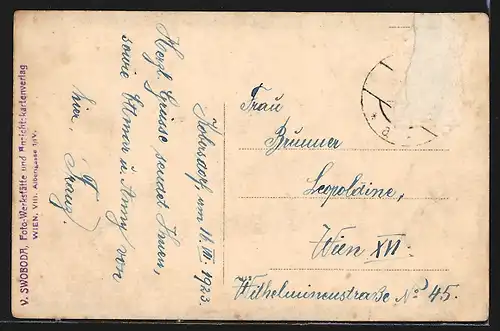 Kobersdorf, am 11. VII. 1923.
Herzl. Grüsse sendet Ihnen,
sowie Ottmar u. Anny von
hier,
Franz.
Frau
Brunner
Leopoldine,
Wien XVI.
Wilhelminenstraße No 45.
V. SWOBODA, Foto-Werkstätte und Ansichtskartenverlag
WIEN, VIII. Albertgasse